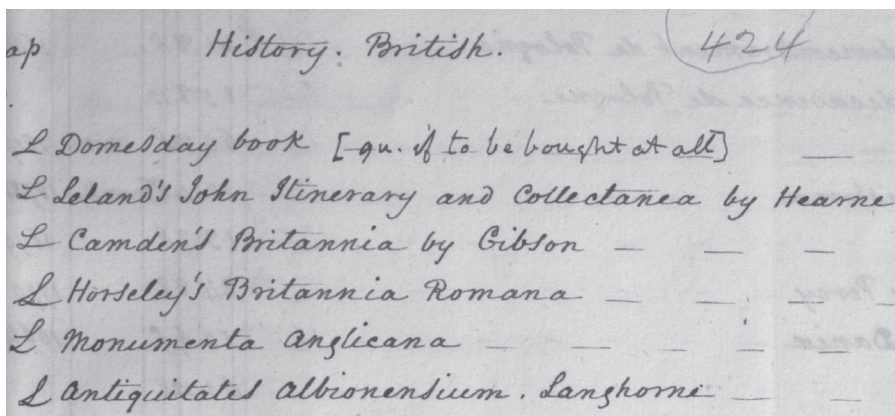 ap History. British. 424
L Domesday book [qu. if to be bought at all] —
L Leland's John Itinerary and Collectanea by Hearne
L Camden's Britannia by Gibson — — —
L Horseley's Britannia Romana — — — —
L Monumenta Anglicana — — — — —
L Antiquitates Albionensium. Langhorne — —